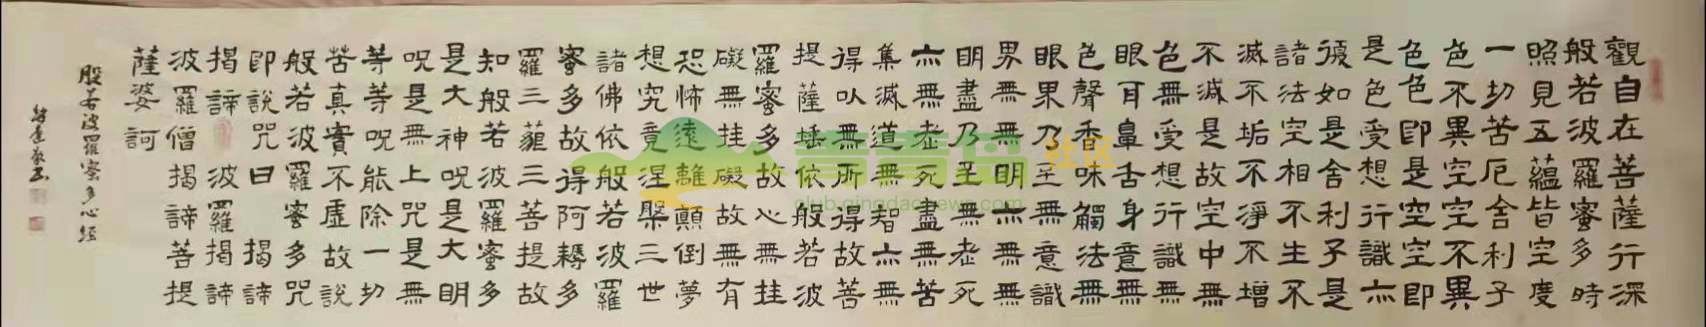 觀自在菩薩行深
般若波羅蜜多時
照見五蘊皆空度
一切苦厄舍利子
色不異空空不異
色色即是空空即
是色受想行識亦
復如是舍利子是
諸法空相不生不
滅不垢不淨不增
不減是故空中無
色無受想行識無
眼耳鼻舌身意無
色聲香味觸法無
眼果乃至無意識
界無無明亦無無
明盡乃至無老死
亦無老死盡無苦
集滅道無智亦無
得以無所得故菩
提薩埵依般若波
羅蜜多故心無挂
礙無挂礙故無有
恐怖遠離顛倒夢
想究竟涅槃三世
諸佛依般若波羅
蜜多故得阿耨多
羅三藐三菩提故
知般若波羅蜜多
是大神咒是大明
咒是無上咒是無
等等咒能除一切
苦真實不虛故說
般若波羅蜜多咒
即說咒曰 揭諦
揭諦 波羅揭諦
波羅僧揭諦菩提
薩婆訶
般若波羅蜜多心經
青青岛社区
club.qingdaonews.com